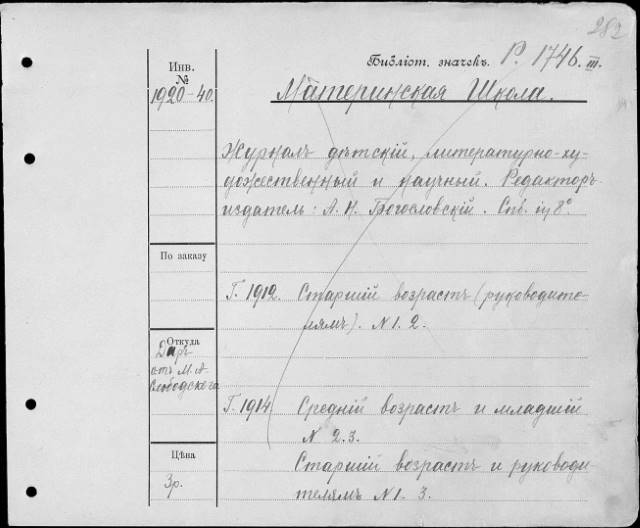 282
Библіот. значекъ. Р. 1746. III.
Инв.
№
1920-40.
Материнская Школа.
Журналъ дѣтскій, литературно-ху-
дожественный и научный. Редакторъ
издатель: А. Н. Богословскій. Спб. in 8º.
По заказу
Г. 1912. Старшій возрастъ (руководите-
лямъ). N 1. 2.
Откуда
Даръ
отъ М. А.
Слободскаго
Г. 1914. Средній возрастъ и младшій
N 2. 3.
Цѣна
3р.
Старшій возрастъ и руководи-
телямъ N 1- 3.